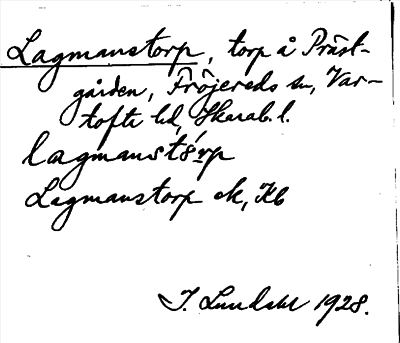 Lagmanstorp, torp å Präst-
gården, Fröjereds sn, Var-
tofta hd, Skarab. l.
lagmanstórp
Lagmanstorp ek, Kb
J. Lundahl 1928.